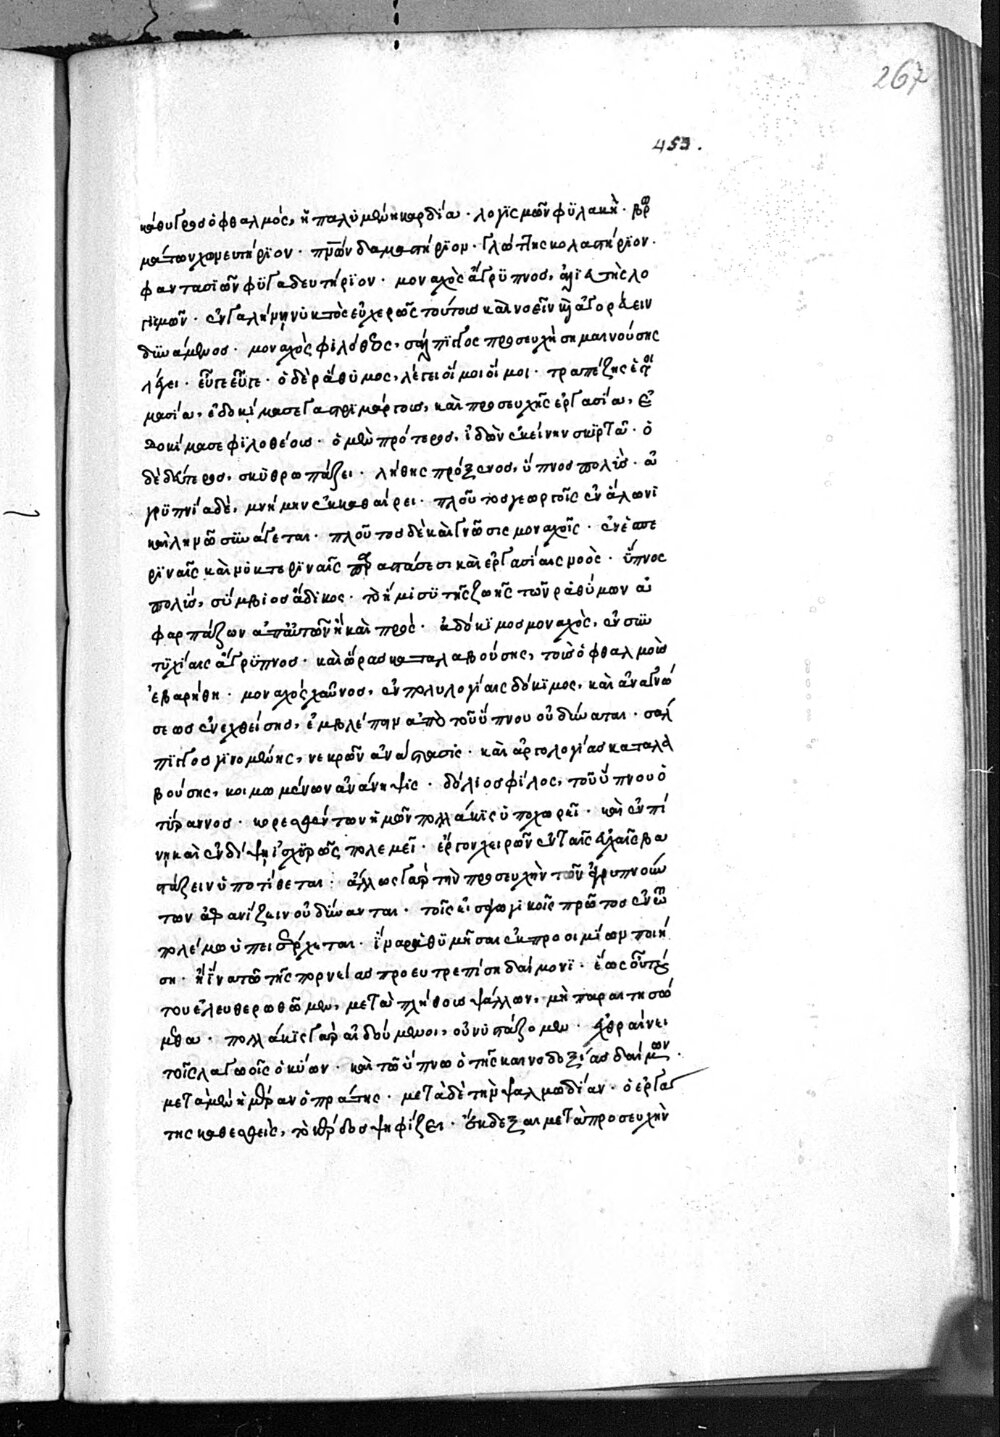 267
453.
κάθυγρος ὀφθαλμὸς, ἡπαλυμένη καρδία. λογισμῶν φυλακὴ. βρω
μάτων χωνευτήριον. πνῶν δαμαστήριον. γλώττης κολαστήριον.
φαντασιῶν φυγαδευτήριον. μοναχὸς ἄγρυπνος, ἁλιεὺς λο
γισμῶν. ἐν γαλήνῃ νυκτὸς εὐχερῶς τούτους κατανοεῖν καὶ ἀγορεύειν
δυνάμενος. μοναχὸς φιλόθεος, σάλπιγγος προσευχὴ σημαινούσης
λέγει. εὖγε εὖγε. ὁ δὲ ῥάθυμος, λέγει οἴμοι οἴμοι. τραπέζης ἑτοι
μασία, ἐδοκίμασε γαστριμάργους, καὶ προσευχῆς ἐργασία, ἐ
δοκίμασε φιλοθέους. ὁ μὲν πρότερος, ἰδὼν ἐκείνην σκιρτᾶ. ὁ
δὲ δεύτερος, σκυθρωπάζει. λήθης πρόξενος, ὕπνος πολὺς. ἀ
γρυπνία δὲ, μνήμην ἐκκαθαίρει. πλοῦτος γεωργοῖς ἐν ἅλωνι
καὶ ληνῶ συνάγεται. πλοῦτος δὲ καὶ γνῶσις μοναχοῖς. ἐν ἑσπε
ριναῖς καὶ νυκτεριναῖς παραστάσεσι καὶ ἐργασίαις νοὸς. ὕπνος
πολὺς, σύμβιος ἄδικος. τὸ ἥμισυ τῆς ζωῆς τῶν ῥαθύμων ἀ
φαρπάζων ἀπ' αὐτῶν ἢ καὶ πρὸς. ἀδόκιμος μοναχὸς, ἐν συν
τυχίαις ἄγρυπνος. καὶ ὥρας καταλαβούσης, τοὺς ὀφθαλμοὺς
ἐβαρήθη. μοναχὸς χαῦνος, ἐν πολυλογίαις δόκιμος, καὶ ἀναγνώ
σεως ἐνεχθείσης, ἐμβλέπειν ἀπὸ τοῦ ὕπνου οὐ δύναται. σάλ
πιγγος γινομένης, νεκρῶν ἀνάστασις. καὶ ἀργολογίας καταλα
βούσης, κοιμωμένων ἀνάνηψις. δόλιος φίλος, τοῦ ὕπνου ὁ
τύραννος. κορεσθέντων ἡμῶν πολλάκις ὑποχωρεῖ. καὶ ἐν πεί
νῃ καὶ ἐν δίψῃ ἰσχυρῶς πολεμεῖ. ἔργον χειρῶν ἐν ταῖς εὐχαῖς βα
στάζειν ὑποτίθεται. ἄλλως γὰρ τὴν προσευχὴν τῶν ἀγρυπνούν
των ἀφανίζειν οὐ δύναται. τοῖς εἰσαγωγικοῖς πρῶτος ἐν τῶ
πολέμω ὑπεισέρχεται. ἵνα ῥαθυμῆσαι ἐκ προοιμίων ποιή
σῃ. ἢ ἵνα τῶ τῆς πορνείας προευτρεπίσῃ δαίμονι. ἕως οὗ τού
του ἐλευθερωθῶμεν, μετὰ πλήθους ψάλλειν, μὴ παραιτησώ
μεθα. πολλάκις γὰρ αἰδούμενοι, οὐ νυστάζομεν. ἐχθραίνει
τοῖς λαγωοῖς ὁ κύων. καὶ τῶ ὕπνω ὁ τῆς κενοδοξίας δαίμων.
μετὰ μὲν ἡμέραν ὁ πράτης. μετὰ δὲ τὴν ψαλμωδίαν. ὁ ἐργάτης
της καθεσθεὶς, τὸ κέρδος ψηφίζει. ἔκδεξαι μετὰ προσευχὴν